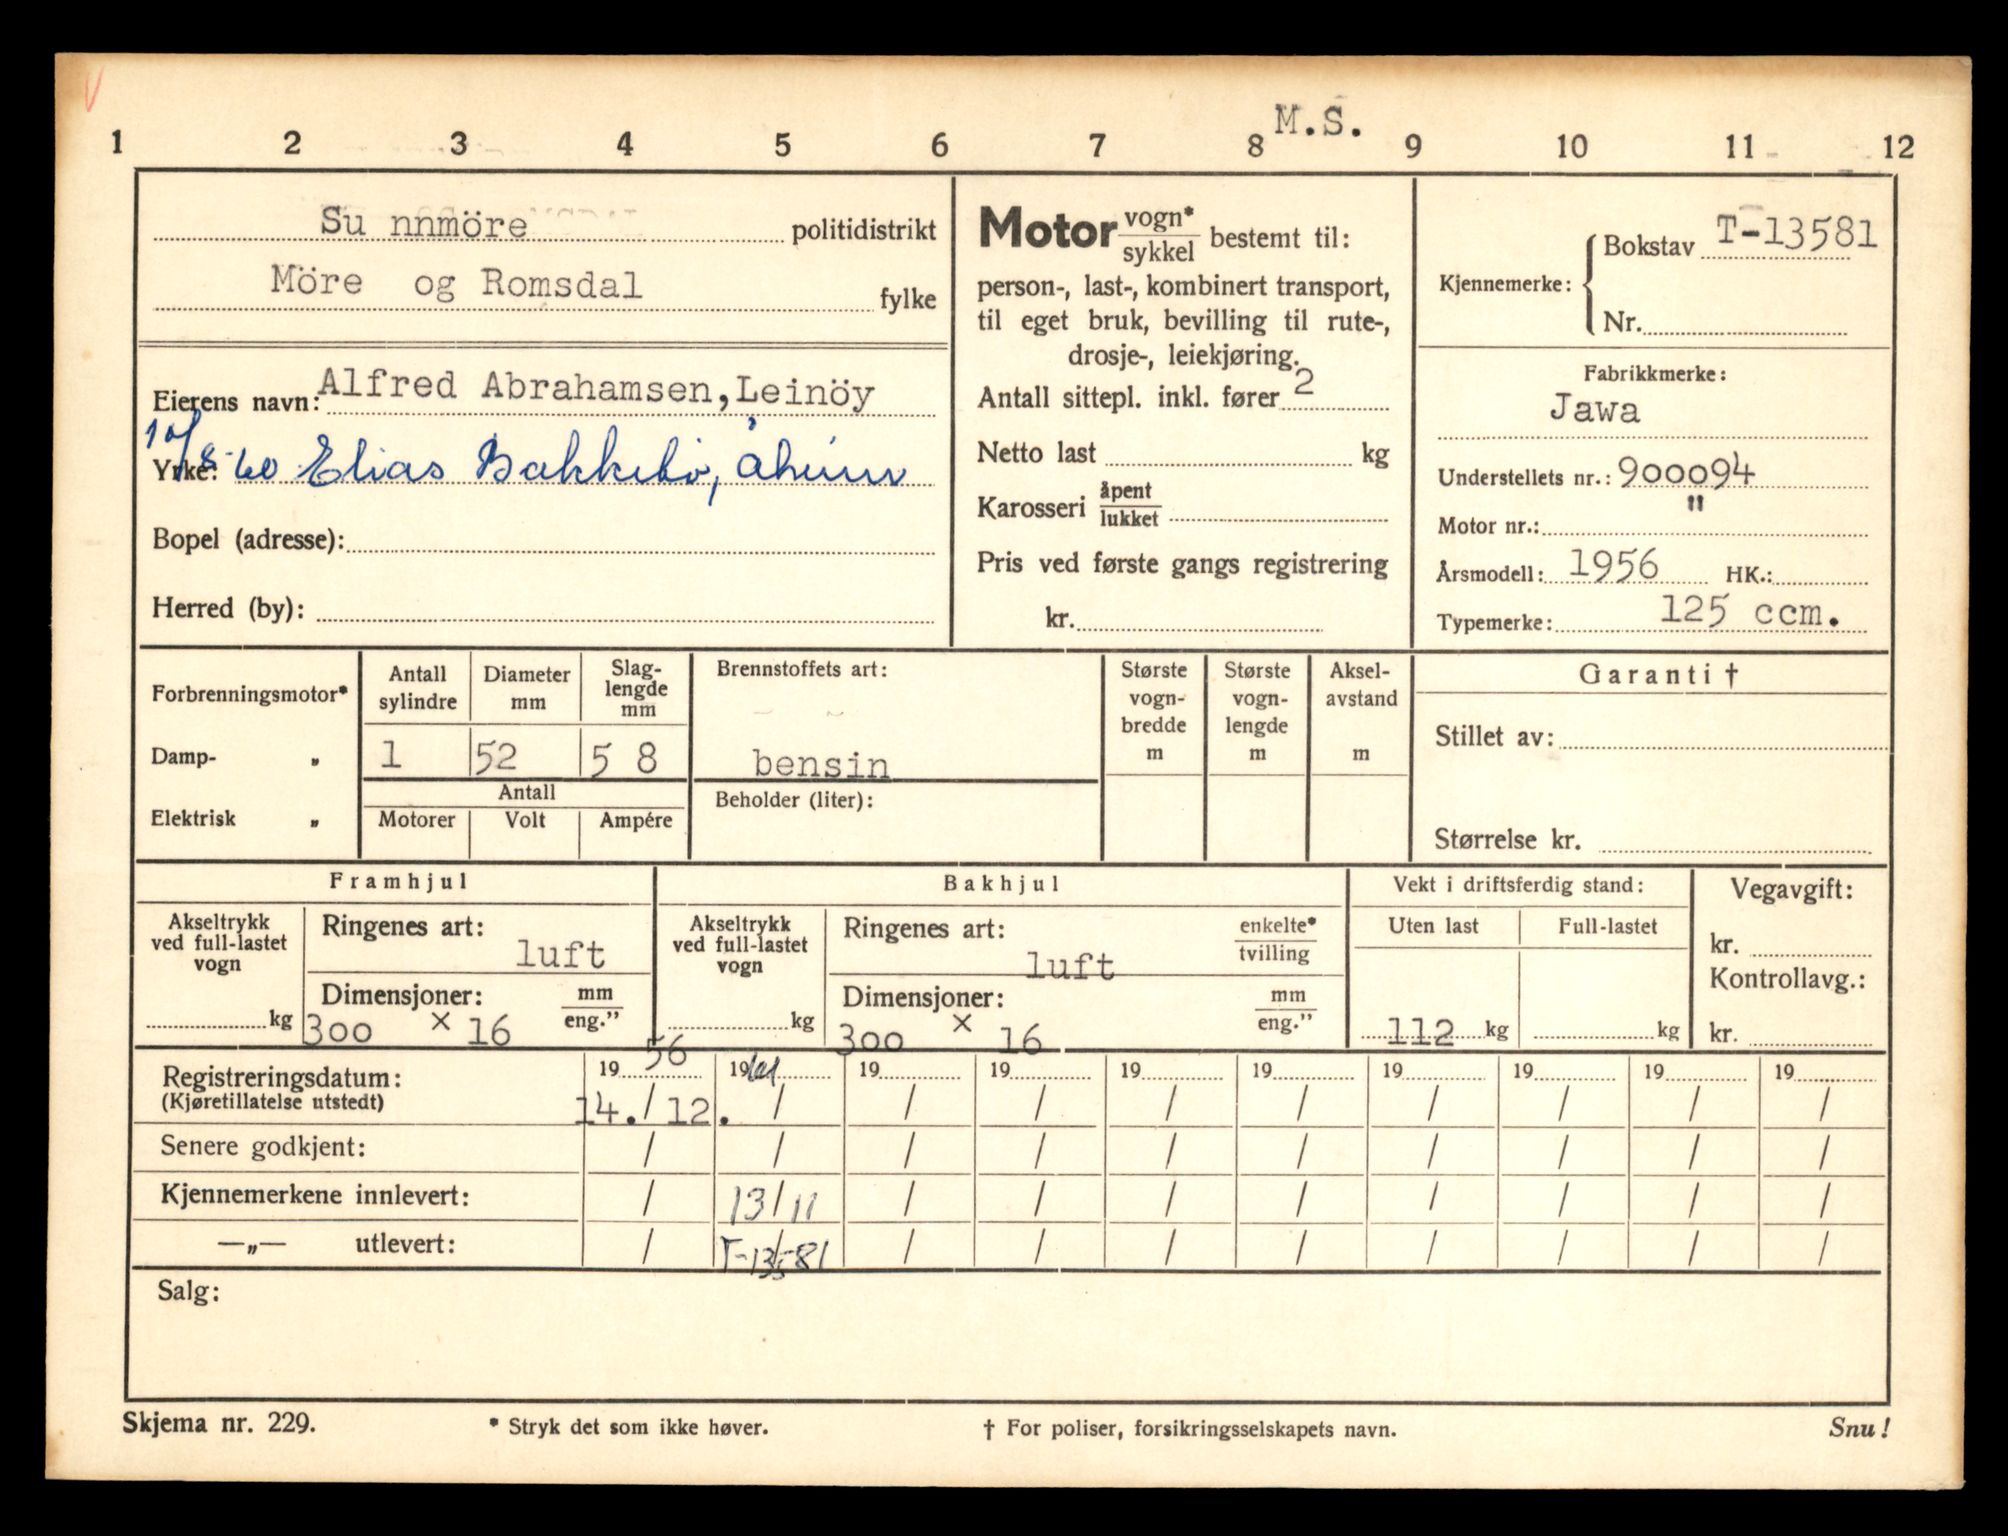 M.S.
1 2 3 4 5 6 7 8 9 10 11 12
Su nnmöre politidistrikt
Möre og Romsdal fylke
Eierens navn: Alfred Abrahamsen, Leinöy
10/8-60 Elias Bakkebø, Åheim
Yrke:
Bopel (adresse):
Herred (by):
Motor vogn*/sykkel bestemt til:
person-, last-, kombinert transport,
til eget bruk, bevilling til rute-,
drosje-, leiekjøring.
Antall sittepl. inkl. fører 2
Netto last kg
Karosseri åpent/lukket
Pris ved første gangs registrering
kr.
Kjennemerke: { Bokstav T-13581
Nr.
Fabrikkmerke:
Jawa
Understellets nr.: 900094
Motor nr.: "
Årsmodell: 1956 HK.:
Typemerke: 125 ccm.
Forbrenningsmotor*
Damp- „
Elektrisk „
Antall sylindre
Diameter mm
Slag-lengde mm
1 52 5 8
Antall
Motorer Volt Ampére
Brennstoffets art:
bensin
Beholder (liter):
Største vogn-bredde m
Største vogn-lengde m
Aksel-avstand m
Garanti †
Stillet av:
Størrelse kr.
Framhjul
Akseltrykk ved full-lastet vogn
kg
Ringenes art:
luft
Dimensjoner: mm/eng."
300 × 16
Bakhjul
Akseltrykk ved full-lastet vogn
kg
Ringenes art: enkelte*/tvilling
luft
Dimensjoner: mm/eng."
300 × 16
Vekt i driftsferdig stand:
Uten last Full-lastet
112 kg kg
Vegavgift:
kr.
Kontrollavg.:
kr.
Registreringsdatum: 19 56 19 61 19 19 19 19 19 19 19 19
(Kjøretillatelse utstedt) 14. / 12. / / / / / / / / /
Senere godkjent: / / / / / / / / / /
Kjennemerkene innlevert: / 13/11 / / / / / / / /
—„— utlevert: / T-13581 / / / / / / / /
Salg:
Skjema nr. 229. * Stryk det som ikke høver. † For poliser, forsikringsselskapets navn. Snu!